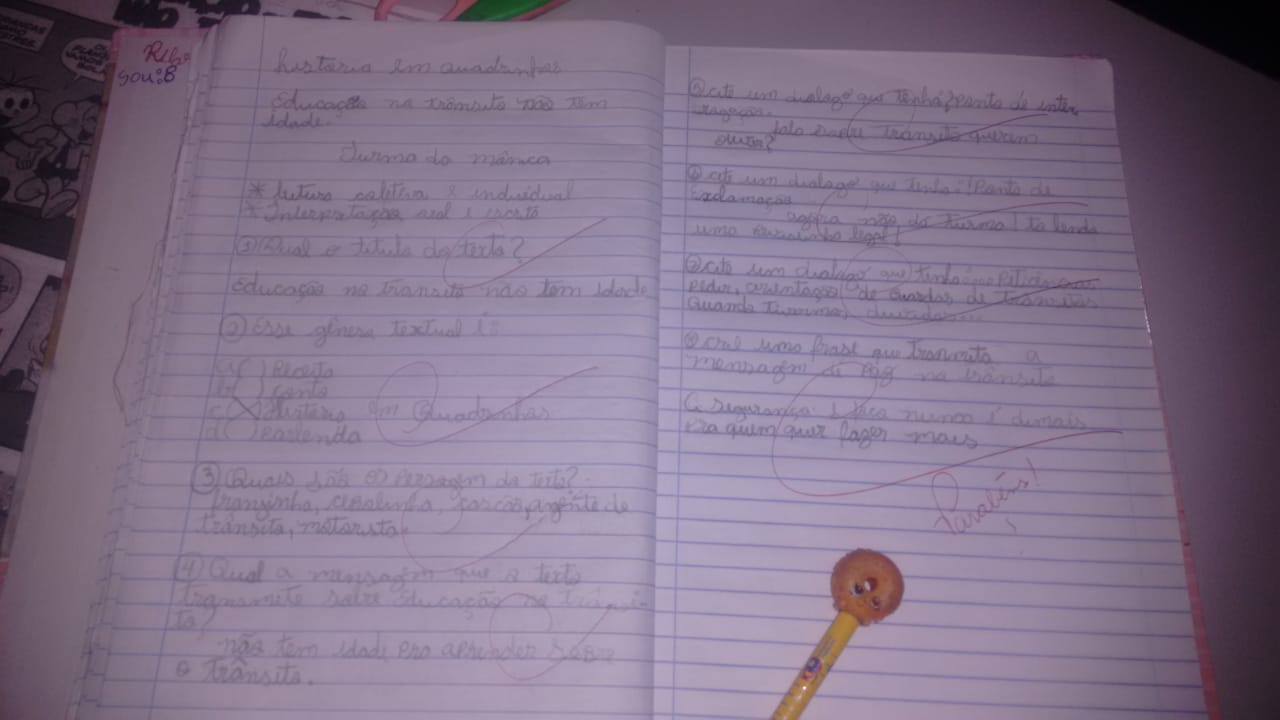 história em quadrinhos
Educação no trânsito não tem
idade.
Turma da mônica
* leitura coletiva e individual
* Interpretação oral e escrita
① Qual o titulo do texto?
Educação no transito não tem idade
② Esse gênero textual é:
a( ) Receita
b( ) conto
c(X) História em Quadrinhos
d( ) Parlenda
③ Quais são os personagem do texto?
franjinha, cebolinha, cascão, agente de
trânsito, motorista
④ Qual a mensagem que o texto
transmite sobre Educação no trânsi-
to?
não tem idade pra aprender sobre
o trânsito.
cite um dialago que tenha? Ponto de inter
rogação.
fala sobre trânsito querem
ouvir?
cite um dialago que tenha! Ponto de
Exclamação
agora não da turma! to lendo
uma legal!
cite um dialogo que tenha
pedir, orientação de Guardas de trânsitos
Quando tivermos duvidas...
crie uma frase que tranmita a
mensagem de paz no trânsito
A segurança nunca é demais
pra quem quer fazer mais
Parabéns!